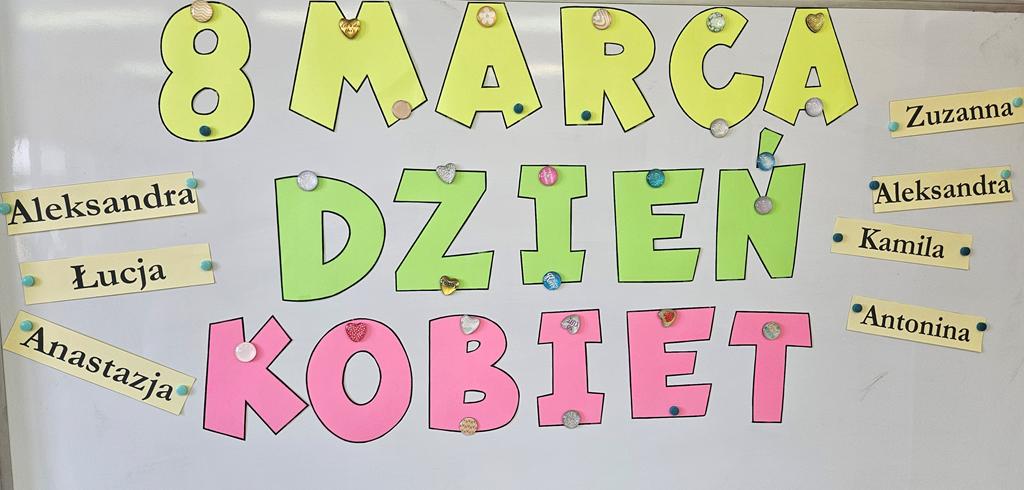 8 MARCA
DZIEŃ
KOBIET
Aleksandra
Łucja
Anastazja
Zuzanna
Aleksandra
Kamila
Antonina